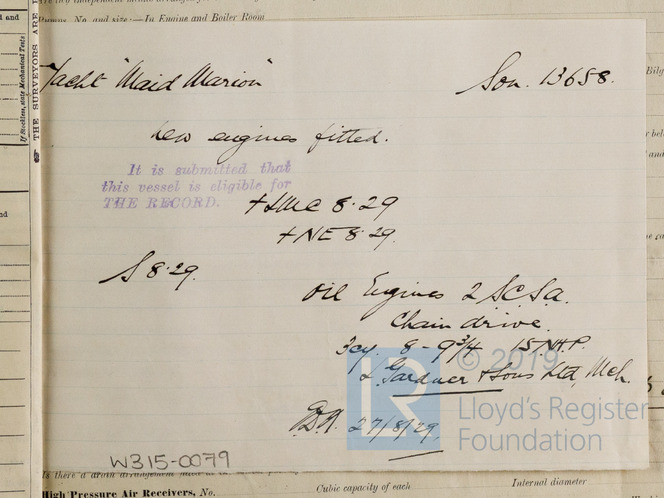 Pumps, No. and size:—In Engine and Boiler Room
THE SURVEYORS ARE
If Stockless, state Mechanical Tests
Yacht "Maid Marion"
Son. 13658.
new engines fitted.
It is submitted that
this vessel is eligible for
THE RECORD.
+LMC 8.29
+NE 8.29.
S 8.29.
Oil Engines 2 SCSa.
Chain drive.
3cy. 8 - 9 3/4 15 NHP.
L. Gardner & Sons Ltd, Mch.
27/8/29.
© 2019
LR
Lloyd's Register
Foundation
W315-0079
High Pressure Air Receivers, No.
Cubic capacity of each
Internal diameter